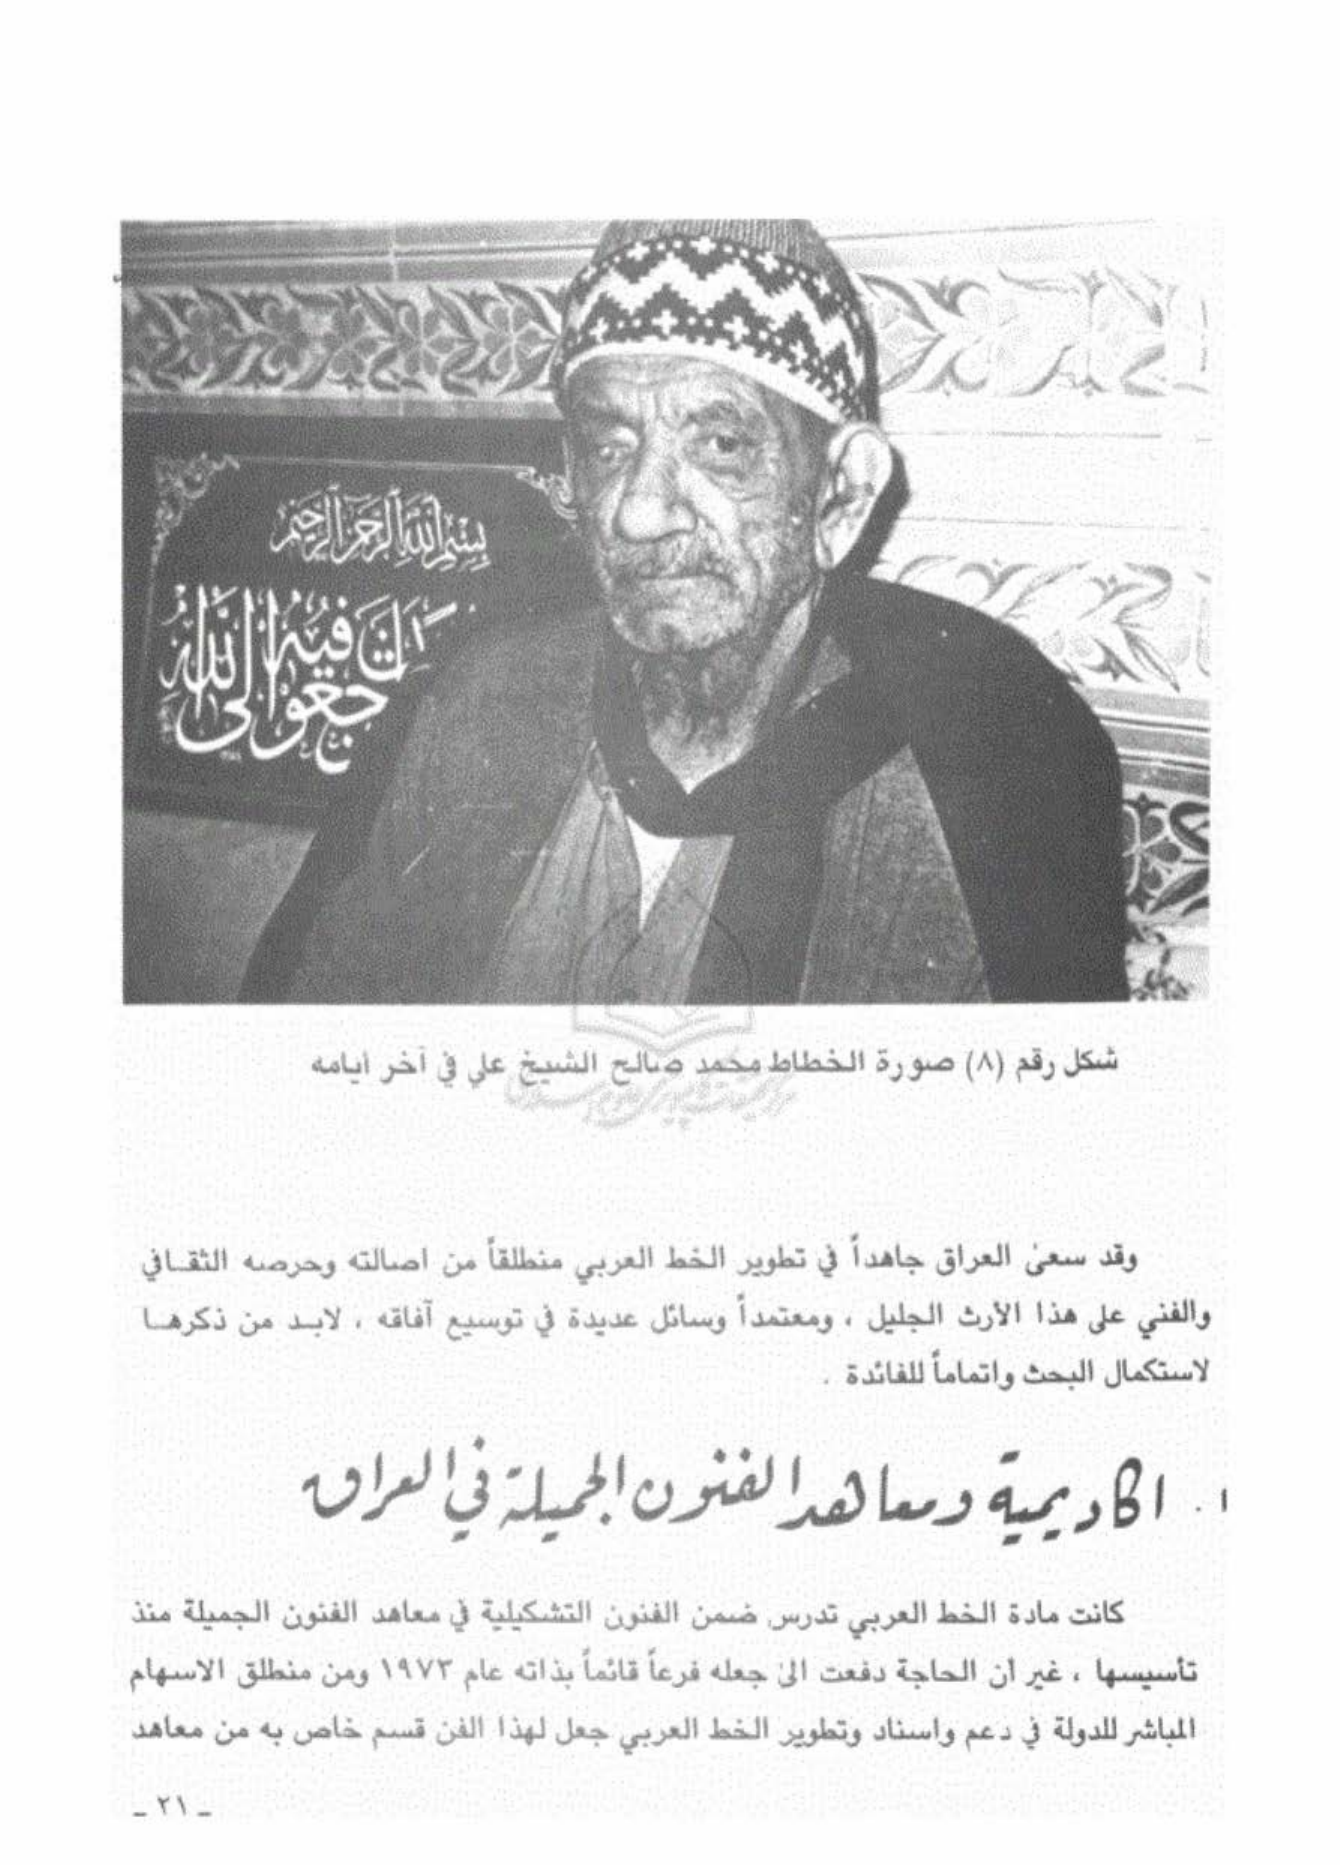 بسم الله الرحمن الرحيم
فيه
جعو
الى الله
شكل رقم (٨) صورة الخطاط محمد صالح الشيخ علي في آخر ايامه
وقد سعىٰ العراق جاهداً في تطوير الخط العربي منطلقاً من اصالته وحرصه الثقـافي
والفني على هذا الأرث الجليل ، ومعتمداً وسائل عديدة في توسيع آفاقه ، لابـد من ذكرهـا
لاستكمال البحث واتماماً للفائدة .
١ . اكاديمية ومعاهد الفنون الجميلة في العراق
كانت مادة الخط العربي تدرس ضمن الفنون التشكيلية في معاهد الفنون الجميلة منذ
تأسيسها ، غير أن الحاجة دفعت الىٰ جعله فرعاً قائماً بذاته عام ١٩٧٣ ومن منطلق الاسهام
المباشر للدولة في دعم واسناد وتطوير الخط العربي جعل لهذا الفن قسم خاص به من معاهد
ـ ٢١ ـ